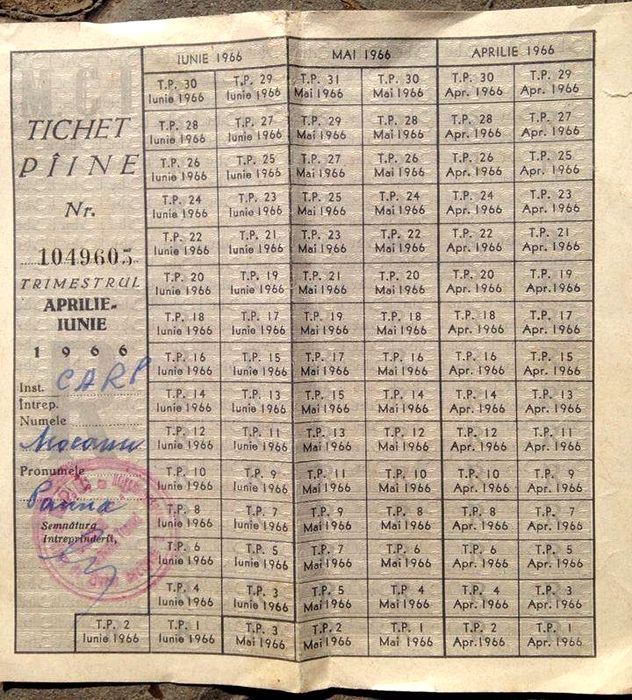 MCI
TICHET
PÎINE
Nr.
1049605
TRIMESTRUL
APRILIE-
IUNIE
1966
Inst. CARP
Întrep.
Numele
Mocanu
Pronumele
Semnătura
Întreprinderii,
IUNIE 1966 MAI 1966 APRILIE 1966
T.P. 30 T.P. 29 T.P. 31 T.P. 30 T.P. 30 T.P. 29
Iunie 1966 Iunie 1966 Mai 1966 Mai 1966 Apr. 1966 Apr. 1966
T.P. 28 T.P. 27 T.P. 29 T.P. 28 T.P. 28 T.P. 27
Iunie 1966 Iunie 1966 Mai 1966 Mai 1966 Apr. 1966 Apr. 1966
T.P. 26 T.P. 25 T.P. 27 T.P. 26 T.P. 26 T.P. 25
Iunie 1966 Iunie 1966 Mai 1966 Mai 1966 Apr. 1966 Apr. 1966
T.P. 24 T.P. 23 T.P. 25 T.P. 24 T.P. 24 T.P. 23
Iunie 1966 Iunie 1966 Mai 1966 Mai 1966 Apr. 1966 Apr. 1966
T.P. 22 T.P. 21 T.P. 23 T.P. 22 T.P. 22 T.P. 21
Iunie 1966 Iunie 1966 Mai 1966 Mai 1966 Apr. 1966 Apr. 1966
T.P. 20 T.P. 19 T.P. 21 T.P. 20 T.P. 20 T.P. 19
Iunie 1966 Iunie 1966 Mai 1966 Mai 1966 Apr. 1966 Apr. 1966
T.P. 18 T.P. 17 T.P. 19 T.P. 18 T.P. 18 T.P. 17
Iunie 1966 Iunie 1966 Mai 1966 Mai 1966 Apr. 1966 Apr. 1966
T.P. 16 T.P. 15 T.P. 17 T.P. 16 T.P. 16 T.P. 15
Iunie 1966 Iunie 1966 Mai 1966 Mai 1966 Apr. 1966 Apr. 1966
T.P. 14 T.P. 13 T.P. 15 T.P. 14 T.P. 14 T.P. 13
Iunie 1966 Iunie 1966 Mai 1966 Mai 1966 Apr. 1966 Apr. 1966
T.P. 12 T.P. 11 T.P. 13 T.P. 12 T.P. 12 T.P. 11
Iunie 1966 Iunie 1966 Mai 1966 Mai 1966 Apr. 1966 Apr. 1966
T.P. 10 T.P. 9 T.P. 11 T.P. 10 T.P. 10 T.P. 9
Iunie 1966 Iunie 1966 Mai 1966 Mai 1966 Apr. 1966 Apr. 1966
T.P. 8 T.P. 7 T.P. 9 T.P. 8 T.P. 8 T.P. 7
Iunie 1966 Iunie 1966 Mai 1966 Mai 1966 Apr. 1966 Apr. 1966
T.P. 6 T.P. 5 T.P. 7 T.P. 6 T.P. 6 T.P. 5
Iunie 1966 Iunie 1966 Mai 1966 Mai 1966 Apr. 1966 Apr. 1966
T.P. 4 T.P. 3 T.P. 5 T.P. 4 T.P. 4 T.P. 3
Iunie 1966 Iunie 1966 Mai 1966 Mai 1966 Apr. 1966 Apr. 1966
T.P. 2 T.P. 1 T.P. 3 T.P. 2 T.P. 1 T.P. 2 T.P. 1
Iunie 1966 Iunie 1966 Mai 1966 Mai 1966 Mai 1966 Apr. 1966 Apr. 1966